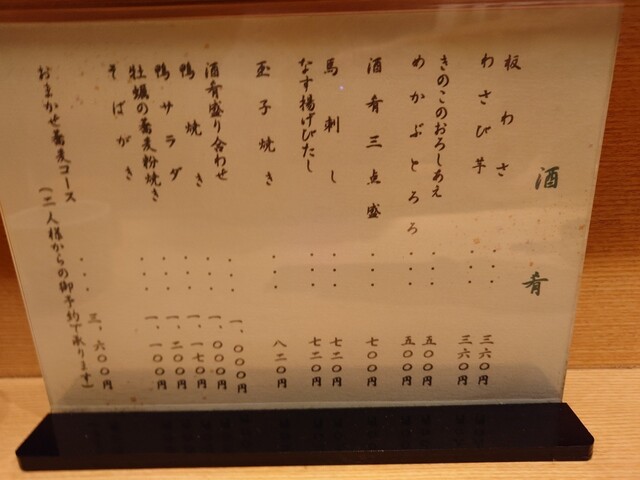 酒肴
板わさ・・・三六〇円
わさび芋・・・三六〇円
きのこのおろしあえ・・・五〇〇円
めかぶとろろ・・・五〇〇円
酒肴三点盛・・・七〇〇円
馬刺し・・・七二〇円
なす揚げびたし・・・七二〇円
玉子焼き・・・八二〇円
酒肴盛り合わせ・・・一、〇〇〇円
鴨焼き・・・一、〇〇〇円
鴨サラダ・・・一、一七〇円
牡蠣の蕎麦粉焼き・・・一、二〇〇円
そばがき・・・一、一〇〇円
おまかせ蕎麦コース・・・三、六〇〇円
(二人様からの御予約で承ります)